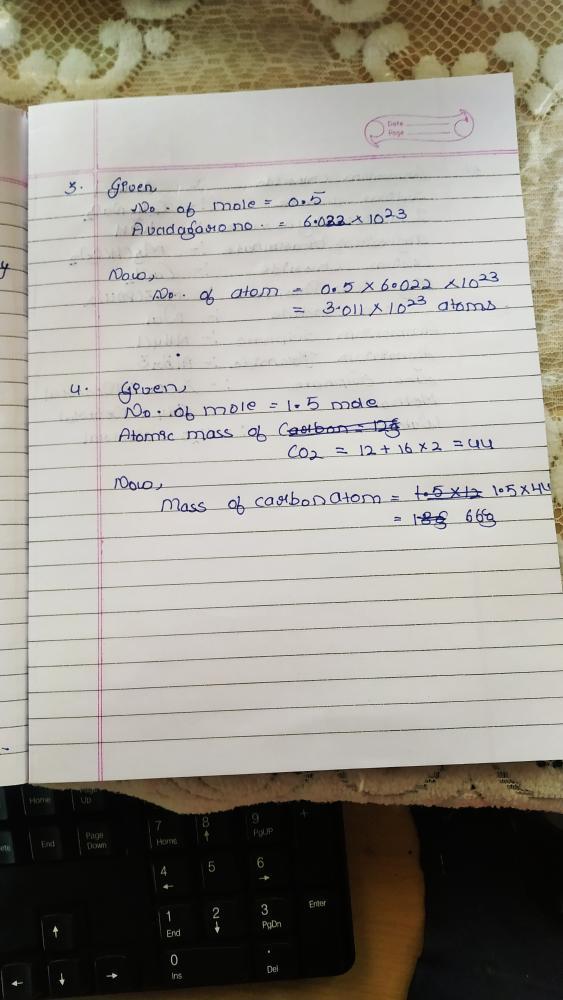 Date
Page
3. Given
No. of mole = 0.5
Avadagaro no. = 6.022 × 10²³
Now,
No. of atom = 0.5 × 6.022 × 10²³
= 3.011 × 10²³ atoms
4. Given,
No. of mole = 1.5 mole
Atomic mass of Carbon = 12g
CO₂ = 12 + 16 × 2 = 44
Now,
Mass of carbon atom = 1.5 × 12 1.5 × 44
= 18g 66g
Home
Up
End
Page
Down
7 8 9
Home ↑ PgUP
+
4 5 6
← →
1 2 3
End ↓ PgDn
Enter
↑
0 .
Ins Del
← ↓ →